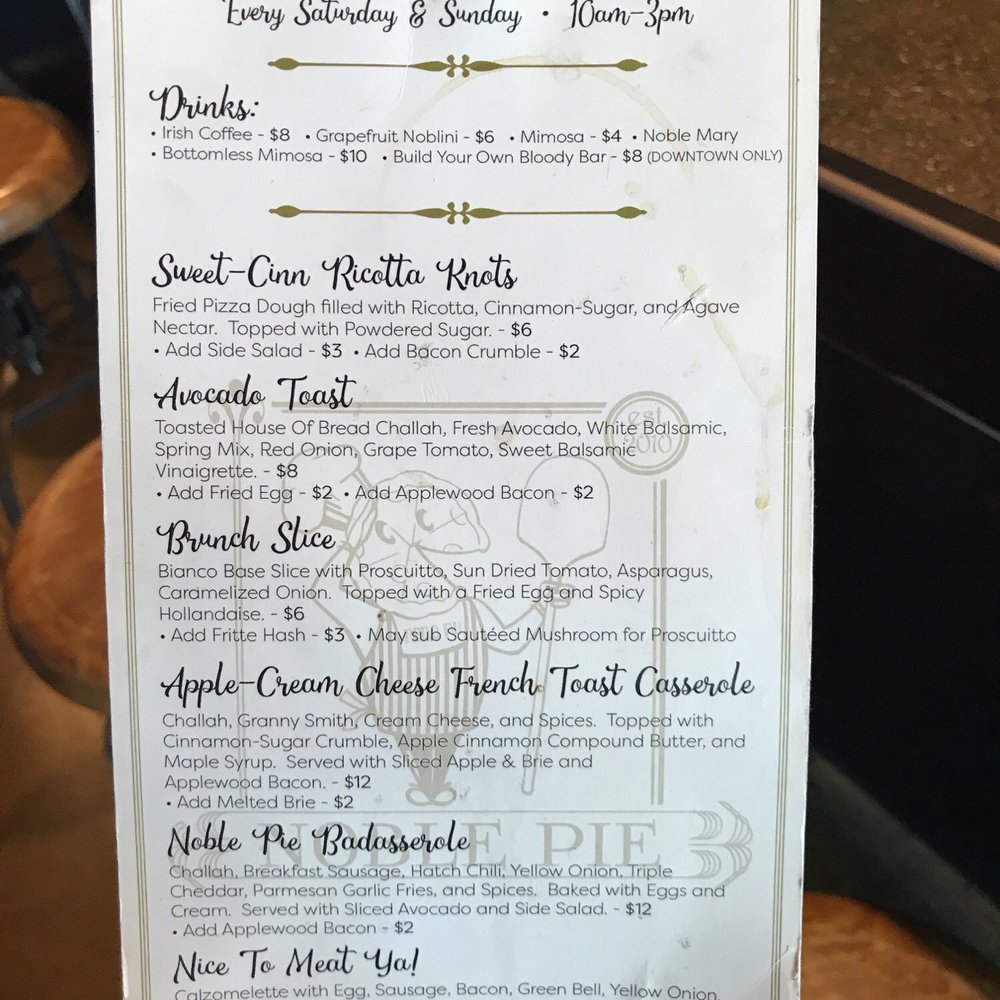 Every Saturday & Sunday • 10am-3pm
Drinks:
• Irish Coffee - $8 • Grapefruit Noblini - $6 • Mimosa - $4 • Noble Mary
• Bottomless Mimosa - $10 • Build Your Own Bloody Bar - $8 (DOWNTOWN ONLY)
Sweet-Cinn Ricotta Knots
Fried Pizza Dough filled with Ricotta, Cinnamon-Sugar, and Agave
Nectar. Topped with Powdered Sugar. - $6
• Add Side Salad - $3 • Add Bacon Crumble - $2
Avocado Toast
est
2010
Toasted House Of Bread Challah, Fresh Avocado, White Balsamic,
Spring Mix, Red Onion, Grape Tomato, Sweet Balsamic
Vinaigrette. - $8
• Add Fried Egg - $2 • Add Applewood Bacon - $2
Brunch Slice
Bianco Base Slice with Proscuitto, Sun Dried Tomato, Asparagus,
Caramelized Onion. Topped with a Fried Egg and Spicy
Hollandaise. - $6
• Add Fritte Hash - $3 • May sub Sautéed Mushroom for Proscuitto
Apple-Cream Cheese French Toast Casserole
Challah, Granny Smith, Cream Cheese, and Spices. Topped with
Cinnamon-Sugar Crumble, Apple Cinnamon Compound Butter, and
Maple Syrup. Served with Sliced Apple & Brie and
Applewood Bacon. - $12
• Add Melted Brie - $2
Noble Pie Badasserole
NOBLE PIE
Challah, Breakfast Sausage, Hatch Chili, Yellow Onion, Triple
Cheddar, Parmesan Garlic Fries, and Spices. Baked with Eggs and
Cream. Served with Sliced Avocado and Side Salad. - $12
• Add Applewood Bacon - $2
Nice To Meat Ya!
Calzomelette with Egg, Sausage, Bacon, Green Bell, Yellow Onion,